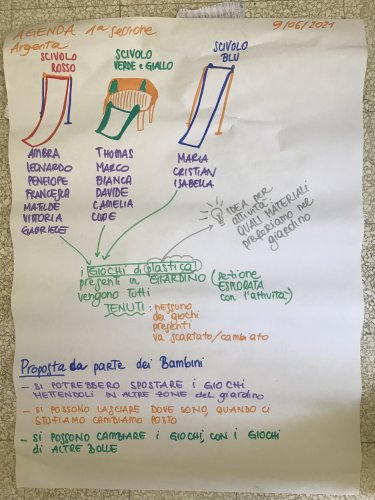 AGENDA 1ª sessione
9/06/2021
Argenta
SCIVOLO
ROSSO
SCIVOLO
VERDE e GIALLO
SCIVOLO
BLU
AMBRA
LEONARDO
PENELOPE
FRANCESCA
MATILDE
VITTORIA
GABRIELE
THOMAS
MARCO
BIANCA
DAVIDE
CAMELIA
CLOE
MARIA
CRISTIAN
ISABELLA
IDEA per
attività:
QUALI MATERIALI
preferiamo nel
giardino
i GIOCHI di plastica
presenti in GIARDINO (
vengono tutti ESPLORATA
con l'attività)
TENUTI: nessuno
dei giochi
presenti
va scartato/cambiato
Proposta da parte dei Bambini
- SI POTREBBERO SPOSTARE i GIOCHI
METTENDOLI IN ALTRE ZONE del giardino
- SI POSSONO LASCIARE DOVE SONO, QUANDO CI
STUFIAMO CAMBIAMO POSTO
- SI POSSONO CAMBIARE I GIOCHI, CON I GIOCHI
di ALTRE BOLLE